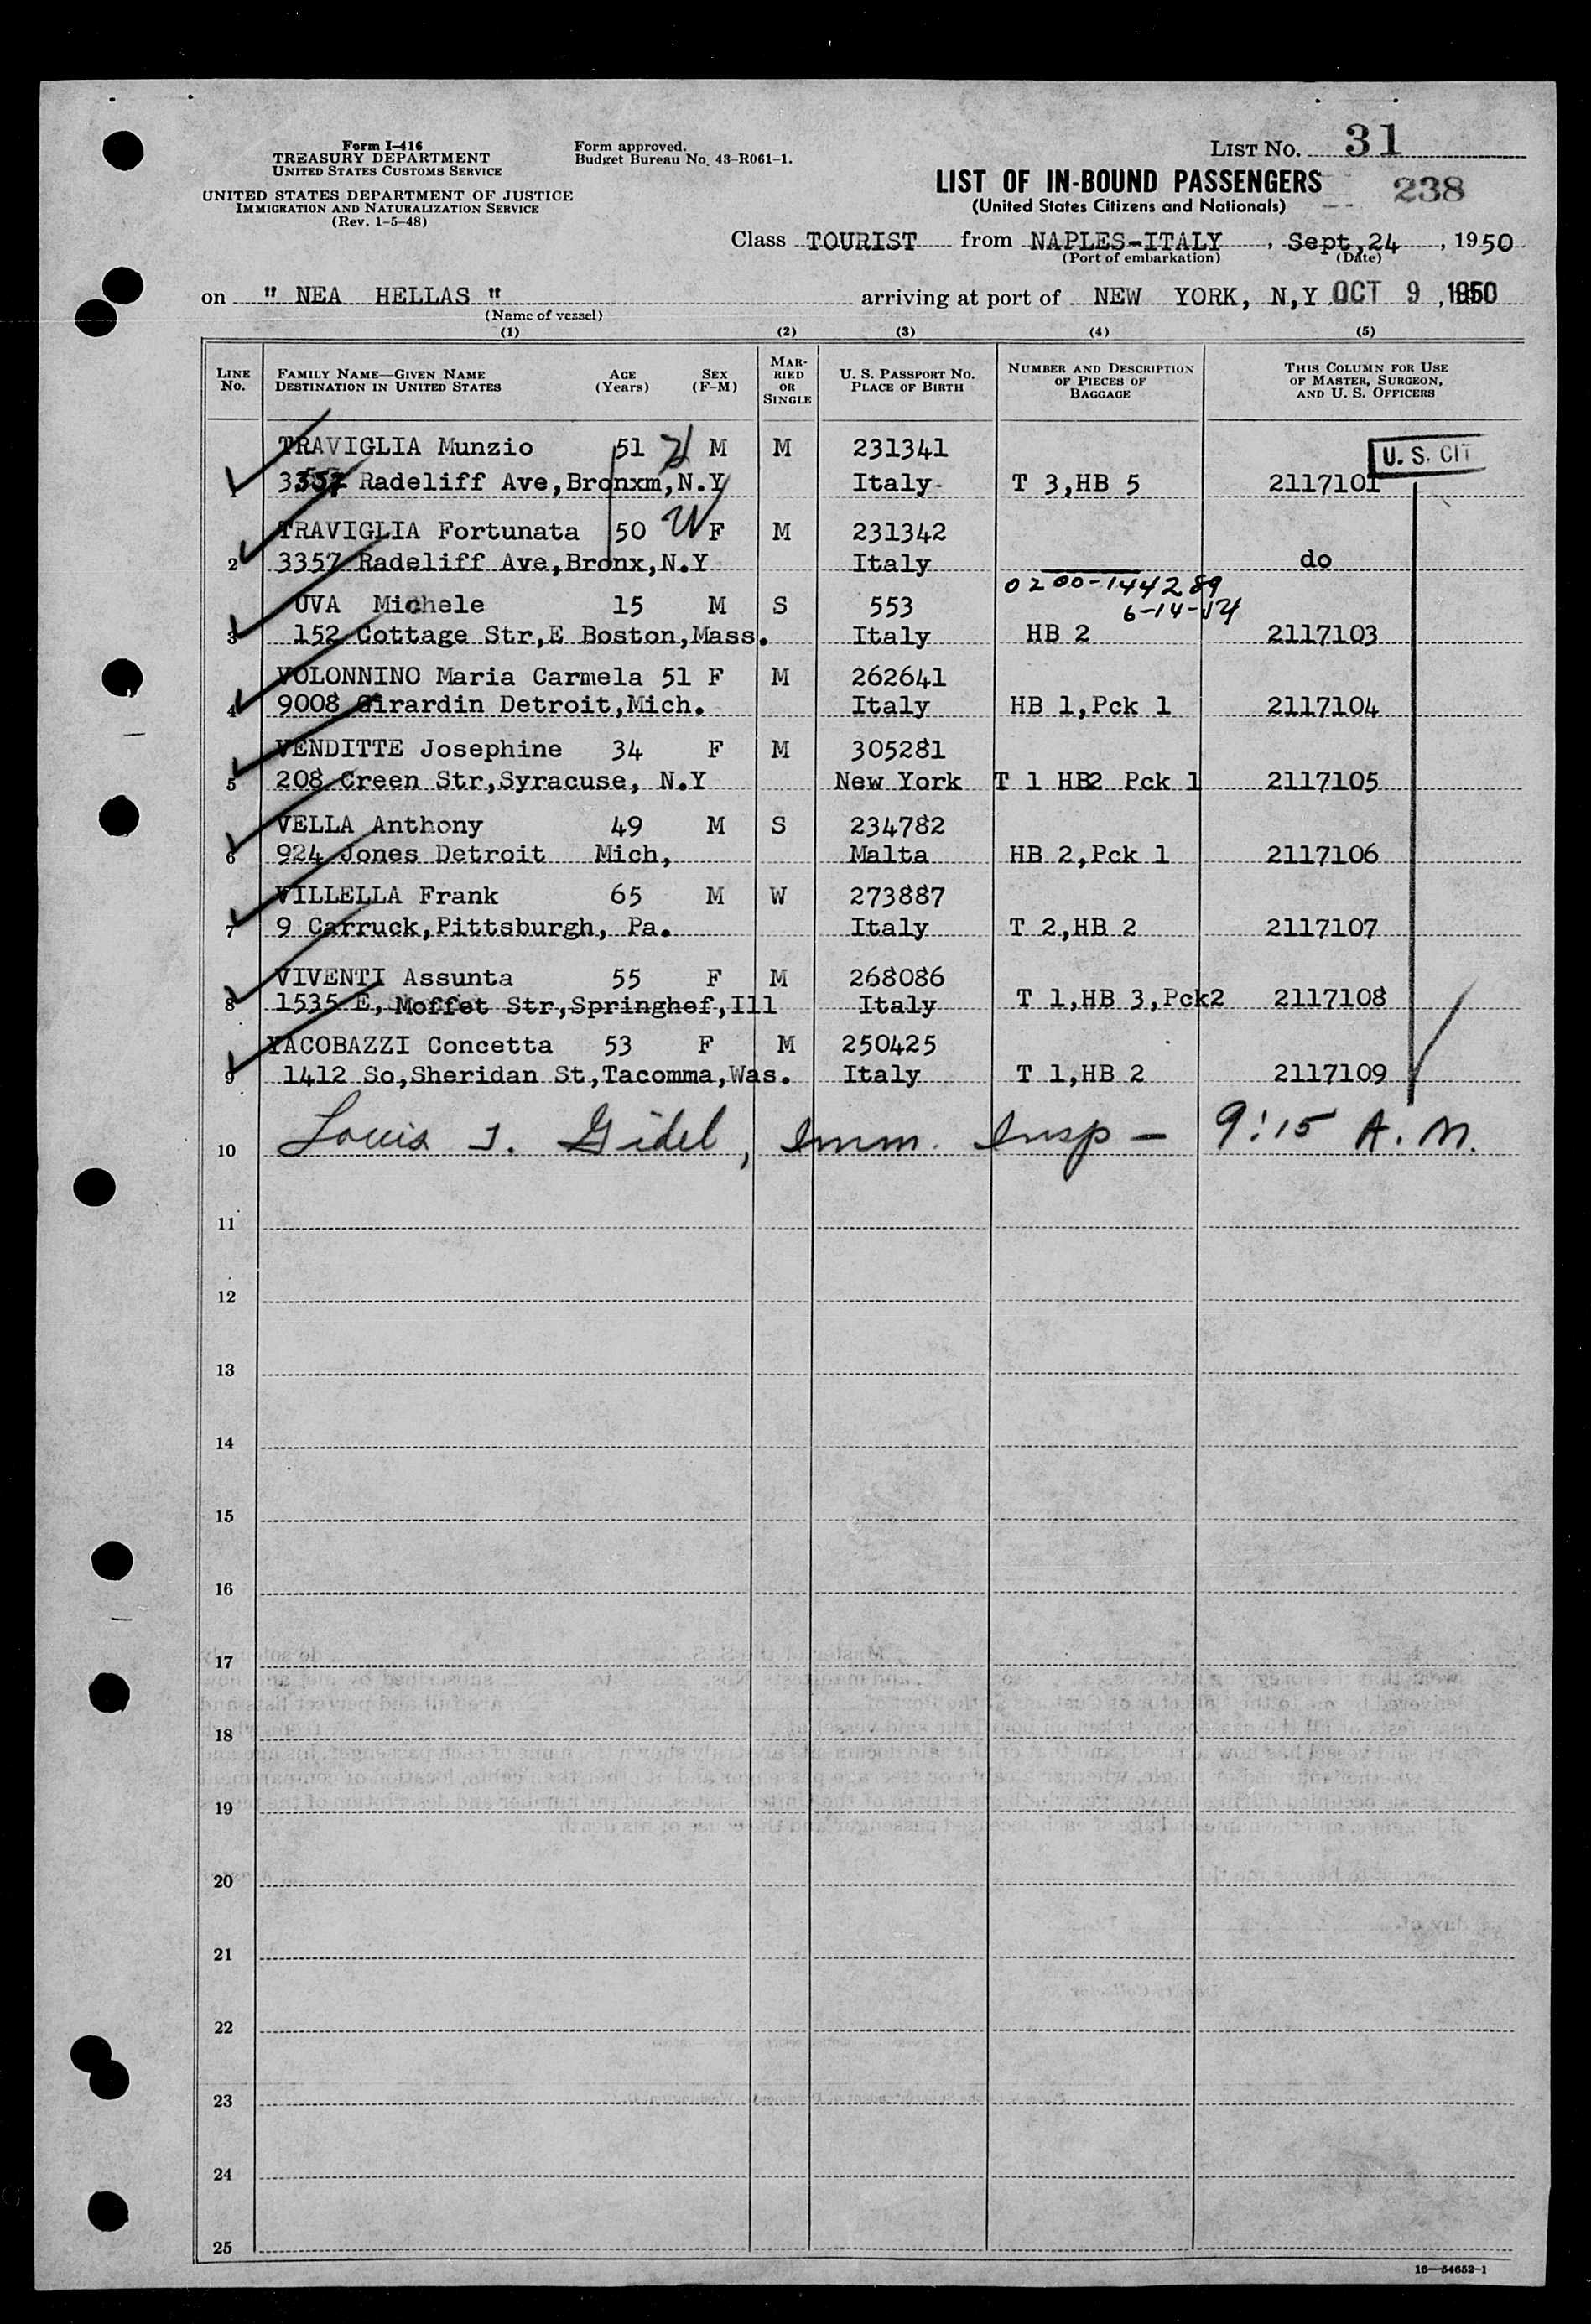 Form I-416
TREASURY DEPARTMENT
UNITED STATES CUSTOMS SERVICE
UNITED STATES DEPARTMENT OF JUSTICE
IMMIGRATION AND NATURALIZATION SERVICE
(Rev. 1-5-48)
Form approved.
Budget Bureau No. 43-R061-1.
LIST NO. 31
LIST OF IN-BOUND PASSENGERS
238
(United States Citizens and Nationals)
Class TOURIST from NAPLES-ITALY, Sept,24, 1950
(Port of embarkation) (Date)
on " NEA HELLAS " arriving at port of NEW YORK, N,Y OCT 9, 1950
(Name of vessel)
(1) (2) (3) (4) (5)
LINE No. FAMILY NAME—GIVEN NAME DESTINATION IN UNITED STATES AGE (Years) SEX (F-M) MARRIED OR SINGLE U. S. PASSPORT NO. PLACE OF BIRTH NUMBER AND DESCRIPTION OF PIECES OF BAGGAGE THIS COLUMN FOR USE OF MASTER, SURGEON, AND U. S. OFFICERS
TRAVIGLIA Munzio 51 M M 231341 U. S. CIT
1 3357 Radeliff Ave,Bronxm,N.Y Italy- T 3,HB 5 2117101
TRAVIGLIA Fortunata 50 W F M 231342
2 3357 Radeliff Ave,Bronx,N.Y Italy do
0200-144289
UVA Michele 15 M S 553 6-14-
3 152 Cottage Str,E Boston,Mass. Italy HB 2 2117103
VOLONNINO Maria Carmela 51 F M 262641
4 9008 Girardin Detroit,Mich. Italy HB 1,Pck 1 2117104
VENDITTE Josephine 34 F M 305281
5 208 Creen Str,Syracuse, N.Y New York T 1 HB2 Pck 1 2117105
VELLA Anthony 49 M S 234782
6 924 Jones Detroit Mich, Malta HB 2,Pck 1 2117106
VILLELLA Frank 65 M W 273887
7 9 Carruck,Pittsburgh, Pa. Italy T 2,HB 2 2117107
VIVENTI Assunta 55 F M 268086
8 1535 E, Moffet Str,Springhef,Ill Italy T 1,HB 3,Pck2 2117108
YACOBAZZI Concetta 53 F M 250425
9 1412 So,Sheridan St,Tacomma,Was. Italy T 1,HB 2 2117109
10 Louis J. Gidel, Imm. Insp - 9:15 A.M.
11
12
13
14
15
16
17
18
19
20
21
22
23
24
25
16—54652-1